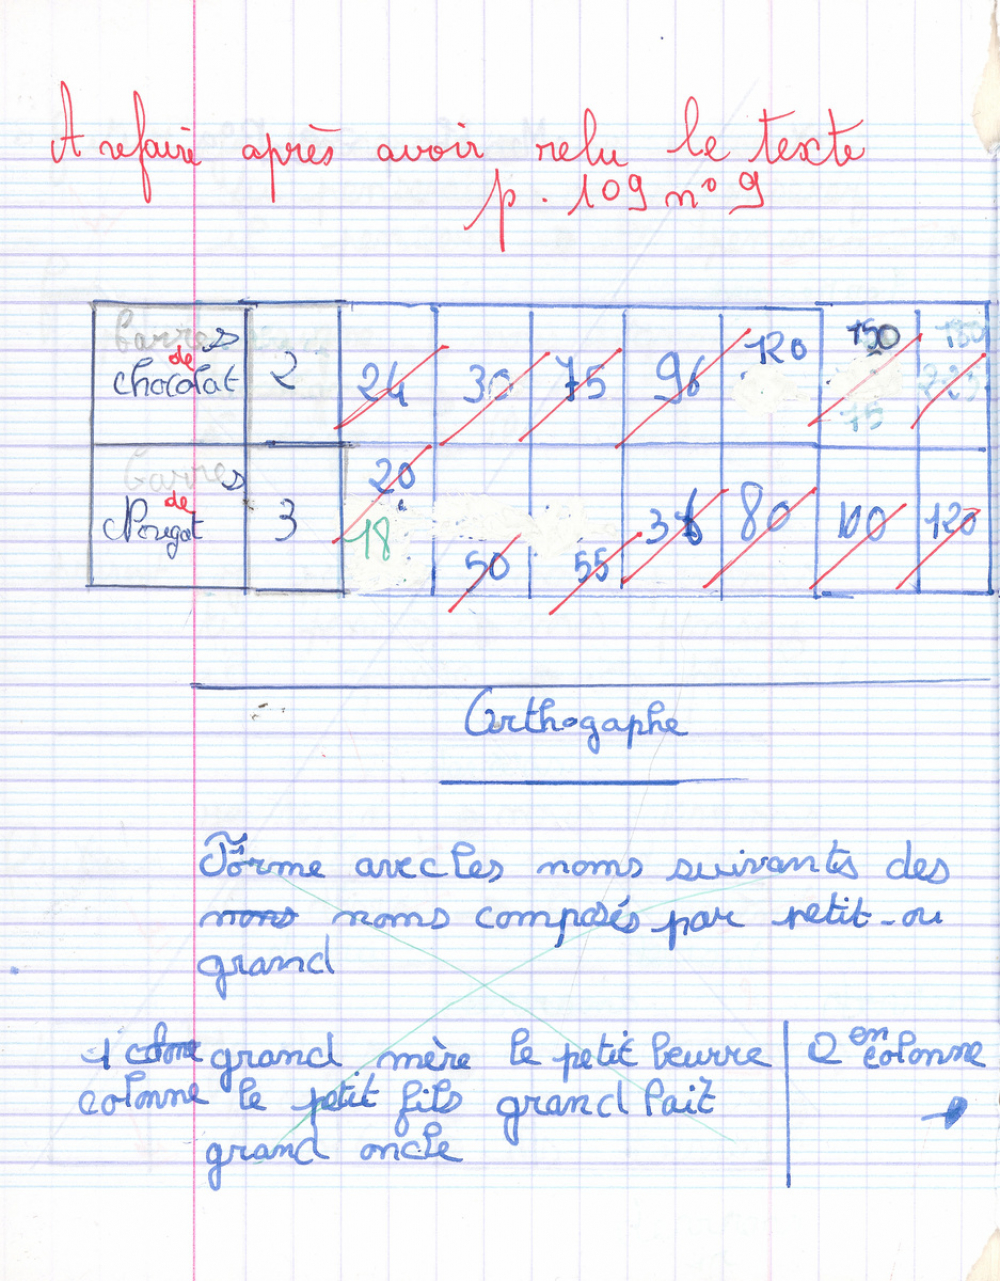 A refaire après avoir relu le texte
p. 109 n° 9
Carres de chocolat 2 24 30 75 96 120 150 75 180
Carres de Nougat 3 20 18 50 55 36 80 100 120
Orthogaphe
Forme avec les noms suivants des
noms noms composés par petit-ou
grand
1 colone grand mère le petit beurre 2 en colonne
colonne le petit fils grand lait
grand oncle